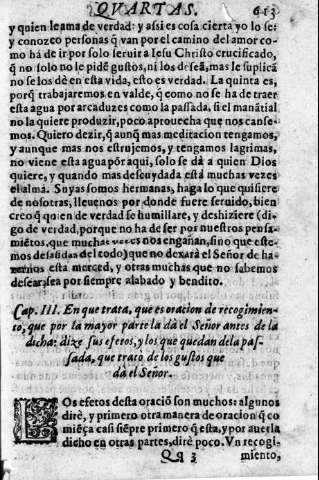 QVARTAS. 613
y quien le ama de verdad: y assi es cosa cierta yo lo se:
y conozco personas q̃ van por el camino del amor co-
mo hã de ir por solo seruir a Iesu Christo crucificado,
q̃ no solo no le pidẽ gustos, ni los deseã, mas le suplicã
no se los dè en esta vida, esto es verdad. La quinta es,
porq̃ trabajaremos en valde, q̃ como no se ha de traer
esta agua por arcaduzes como la passada, si el manãtial
no la quiere produzir, poco aprouecha que nos canse-
mos. Quiero dezir, q̃ aunq̃ mas meditacion tengamos,
y aunque mas nos estrujemos, y tengamos lagrimas,
no viene esta agua por aqui, solo se dà a quien Dios
quiere, y quando mas descuydada està muchas vezes
el alma. Suyas somos hermanas, haga lo que quisiere
de nosotras, lleuenos por donde fuere seruido, bien
creo q̃ quien de verdad se humillare, y deshiziere (di
go de verdad, porque no ha de ser por nuestros pensa-
miẽtos, que muchas vezes nos engañan, sino que este-
mos desasidas del todo) que no dexarà el Señor de ha-
zernos esta merced, y otras muchas que no sabemos
desear, sea por siempre alabado y bendito.
Cap. III. En que trata, que es oracion de recogimien-
to, que por la mayor parte la dà el Señor antes de la
dicha: dize sus efetos, y los que quedan de la pas-
sada, que trato de los gustos que
dà el Señor.
LOs efetos desta oraciõ son muchos: algunos
dirè, y primero otra manera de oracion q̃ co
miẽça casi siẽpre primero q̃ esta, y por auerla
dicho en otras partes, dirè poco. Vn recogi-
Qq 3 miento,